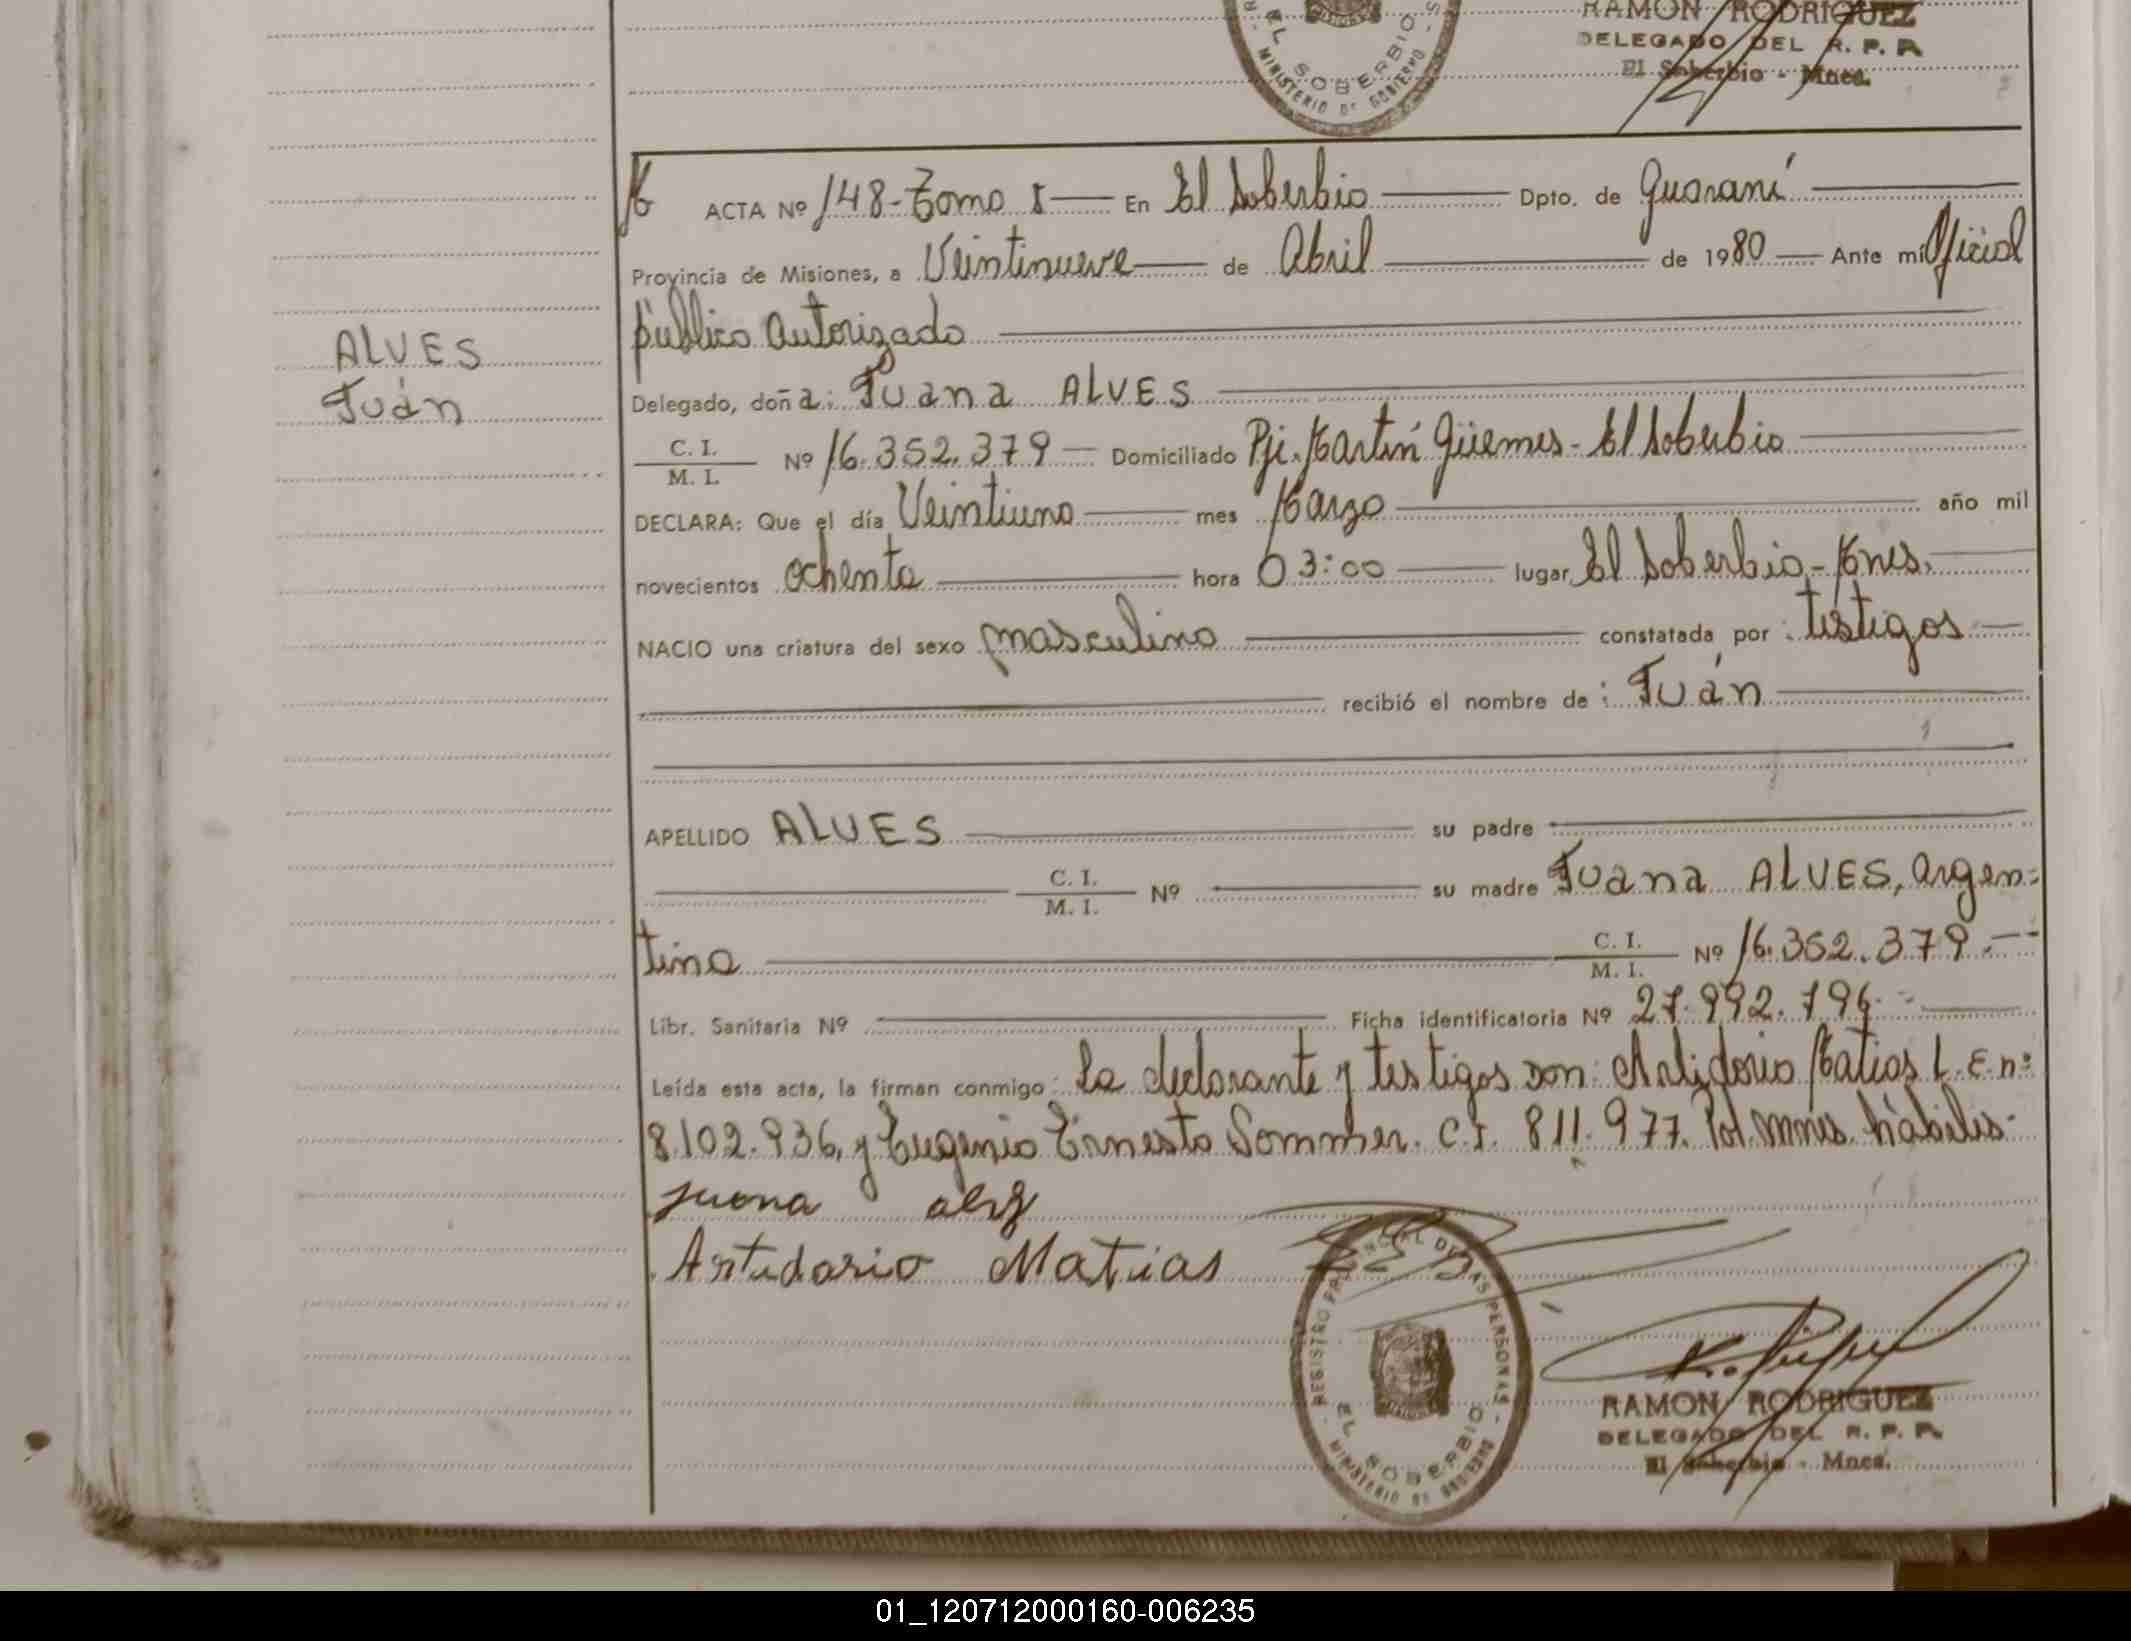 EL SOBERBIO
MINISTERIO DE GOBIERNO
RAMON RODRIGUEZ
DELEGADO DEL R. P. P.
El Soberbio - Mnes.
M ACTA Nº 148-Tomo I En El Soberbio Dpto. de Guaraní
Provincia de Misiones, a Veintinueve de Abril de 1980 Ante mí Oficial
público autorizado
ALVES
Juán
Delegado, doña: Juana ALVES
C. I.
M. I. Nº 16.352.379 Domiciliado Pje. Martín Güemes - El Soberbio
DECLARA: Que el día Veintiuno mes Marzo año mil
novecientos ochenta hora 03:00 lugar El Soberbio - Mnes.
NACIO una criatura del sexo masculino constatada por: testigos
recibió el nombre de: Juán
APELLIDO ALVES su padre
C. I.
M. I. Nº su madre Juana ALVES, argen=
tina C. I.
M. I. Nº 16.352.379.--
Libr. Sanitaria Nº Ficha identificatoria Nº 27.992.796.-
Leída esta acta, la firman conmigo: la declarante y testigos don: Matias L.E.nº
8.102.936, y Eugenio Ernesto Sommer. C.I. 811.977. Pol. Mnes. hábiles.
juana
Matias
REGISTRO PROVINCIAL DE LAS PERSONAS
EL SOBERBIO
MINISTERIO DE GOBIERNO
RAMON RODRIGUEZ
DELEGADO DEL R. P. P.
El Soberbio - Mnes.
01_120712000160-006235